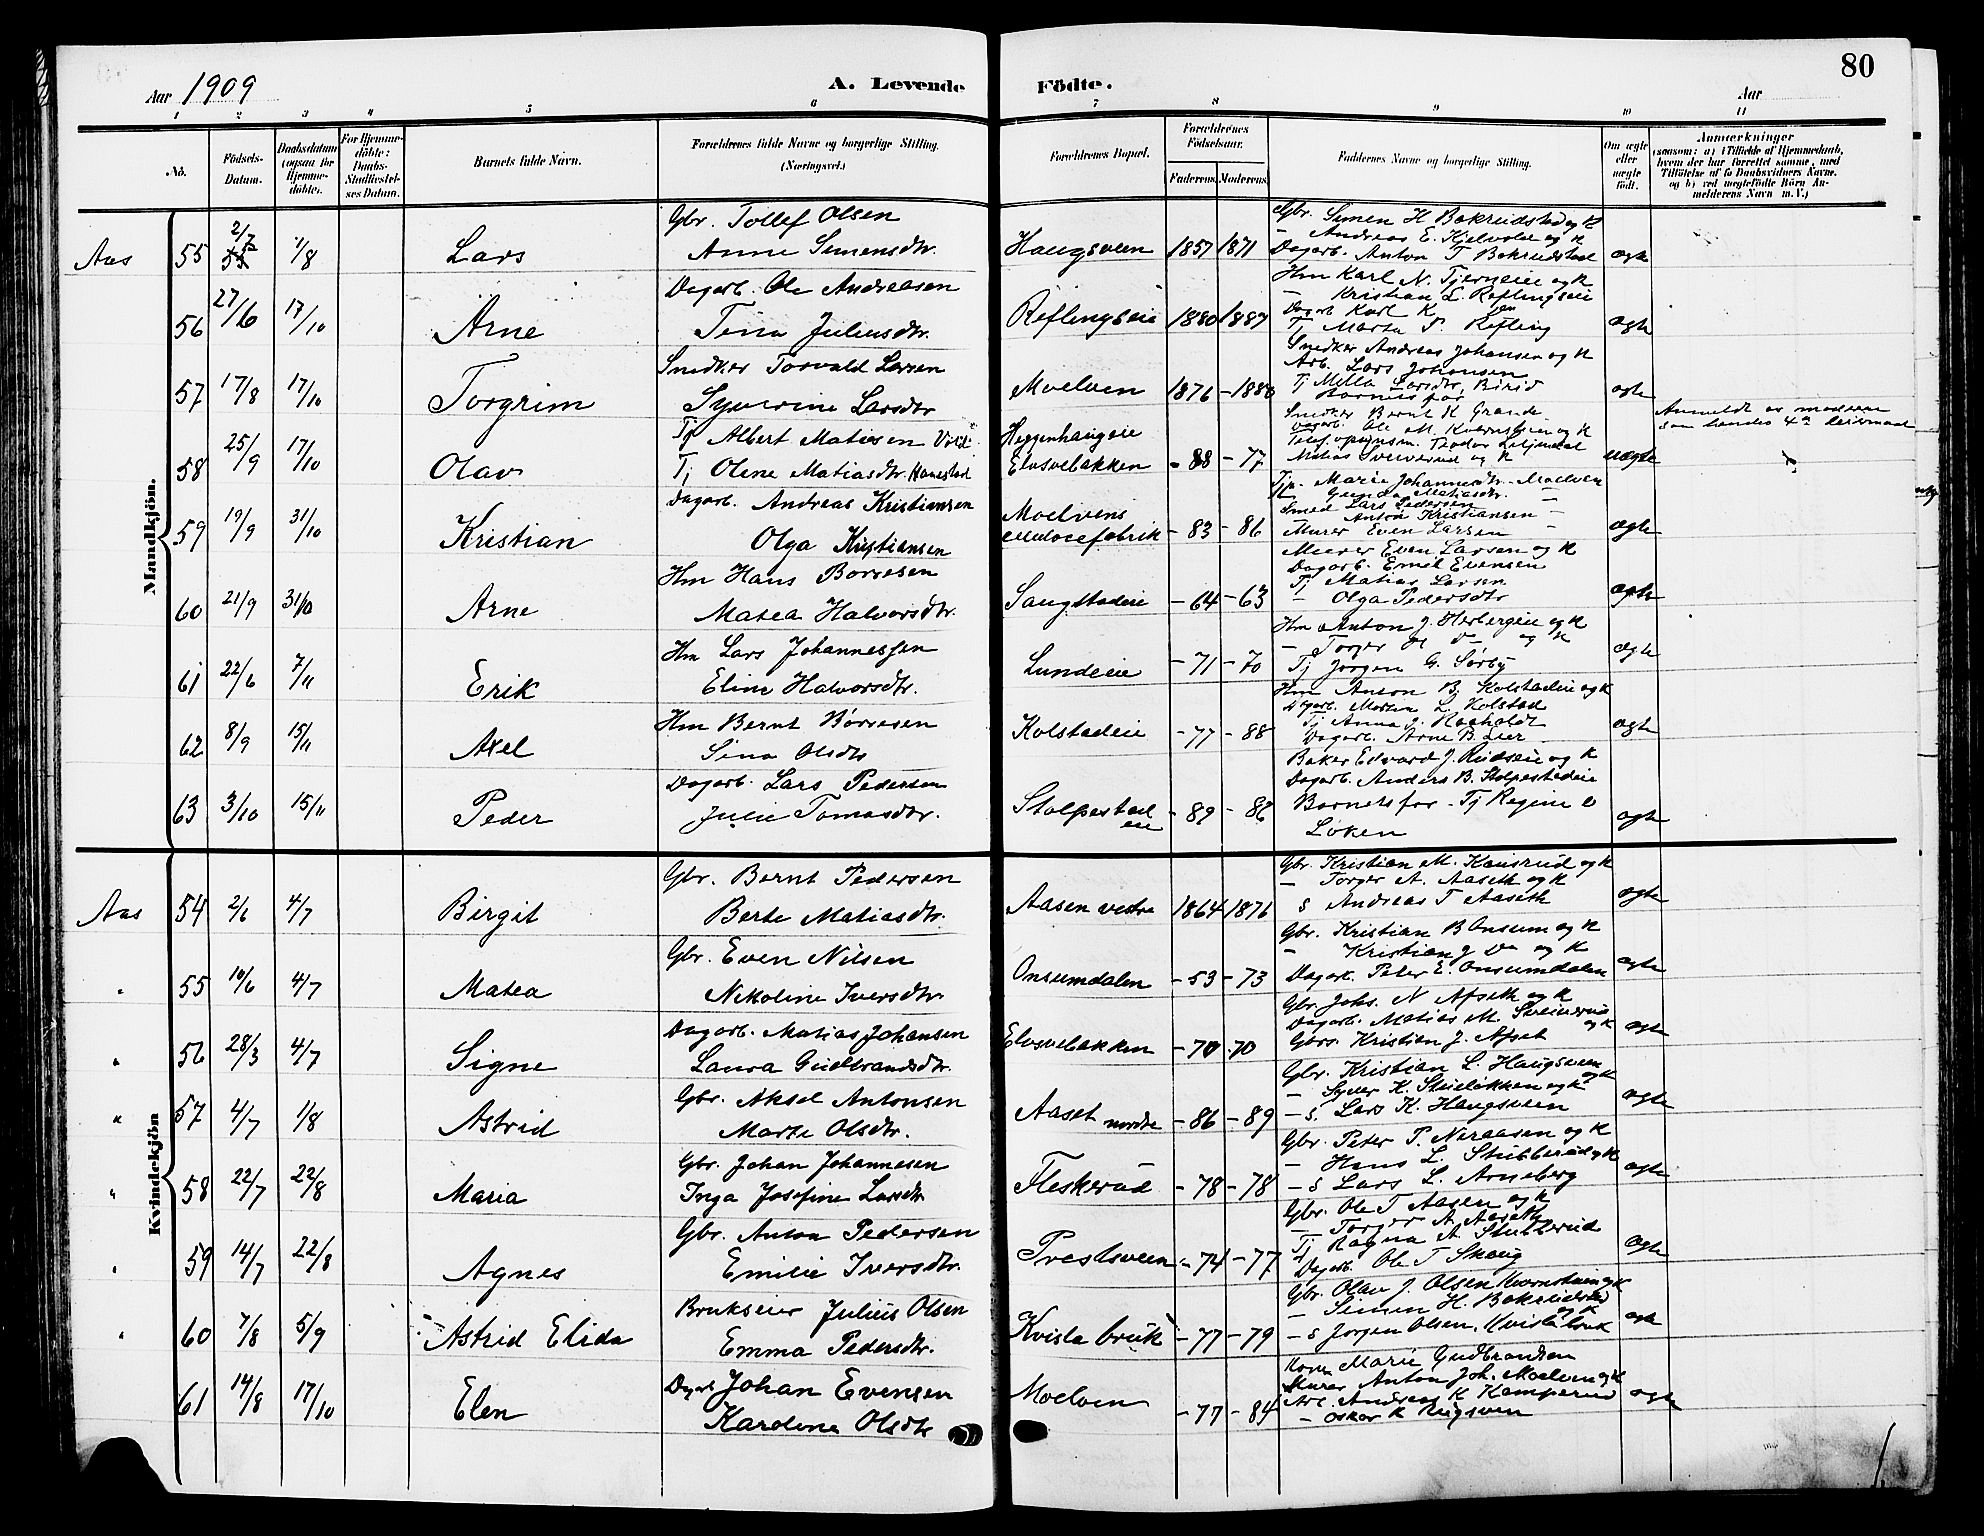 80
Aar 1909
A. Levende Födte.
Aar
1 2 3 4 5 6 7 8 9 10 11
No.
Födsels-Datum.
Daabsdatum (ogsaa for Hjemme-döbte).
For Hjemme-döbte: Daabs-Stadfæstel-ses Datum.
Barnets fulde Navn.
Forældrenes fulde Navne og borgerlige Stilling. (Næringsvei.)
Forældrenes Bopæl.
Forældrenes Födselsaar.
Faderens. Moderens.
Faddernes Navne og borgerlige Stilling.
Om ægte eller uægte födt.
Anmærkninger
(saasom: a) i Tilfælde af Hjemmedaab, hvem der har forrettet samme, med Tilföielse af to Daabsvidners Navne, og b) ved uægtefödte Börn An-melderens Navn m. V.)
Mandkjön.
Aas 55 2/7 1/8 Lars
Gbr. Tollef Olsen
Anne Simensdtr.
Haugsveen 1857 1871
Gbr. Simen H Bakrudstad og K
- Andreas E. Kjelvold og K
Dagarb. Anton T Bakrudstad
ægte
56 27/6 17/10 Arne
Dagarb. Ole Andreasen
Tina Juliusdtr.
Reflingseie 1880 1887
Hm Karl N. Tjerneie og K
- Kristian L. Reflingseie
Dagarb Karl K
Tj Marta P. Refling
ægte
57 17/8 17/10 Torgrim
Snedker Torvald Larsen
Syverine Larsdtr
Moelven 1876 -1880
Snedker Andreas Johansen og K
Arb. Lars Johansen
Tj Milla Larsdtr, Birid
Barnets far
ægte
58 25/9 17/10 Olav
Tj Albert Matisen
Tj Olene Matiasdtr. Hanestad
Heggenhaugeie
Elvsvebakken -88 -77
Snedker Bernt K Grande
Dagarb. Ole M. Kvernstuen og K
uægte
Anmeldt av moderen
som hendes 4de leiermaal
59 19/9 31/10 Kristian
Dagarb. Andreas Kristiansen
Olga Kristiansen
Moelvens
-83 -86
Tjp. Marie Johannesdtr. Moelven
Gunda Matiasdtr.
Smed Lars Pedersen
Anton Kristiansen -
Murer Even Larsen
ægte
60 21/9 31/10 Arne
Hm Hans Børresen
Matea Halvorsdtr.
Saugstadeie -64 -63
Murer Even Larsen og K
Dagarb. Emil Evensen
Tj Matias Larsen
- Olga Pedersdtr
ægte
61 22/6 7/11 Erik
Hm Lars Johannessen
Eline Halvorsdtr.
Lundeie -71 -70
Hm Anton J. Herbergeie og K
- Torger H Do og K
Tj Jørgen G. Sørby
ægte
62 8/9 15/11 Axel
Hm Bernt Børresen
Sina Olsdtr
Kolstadeie -77 -88
Hm Anton B. Kolstadeie og K
Dagarb. Morten L. Kolstad
Tj Anna J. Raaholdt
Dagarb. Arne B. Lier
ægte
63 3/10 15/11 Peder
Dagarb. Lars Pedersen
Julie Tomasdtr.
Stolpestad
eie -89 -86
Baker Edvard J. Rudseie og K
Dagarb. Anders B. Stolpestadeie
Barnets far - Tj Regine O
Løken
ægte
Kvindekjön
Aas 54 2/6 4/7 Birgit
Gbr. Bernt Pedersen
Berte Matiasdtr.
Aasen vestre 1864 1876
Gbr. Kristian M. Kausrud og K
- Torger A. Aaseth og K
S Andreas T Aaseth
ægte
" 55 10/6 4/7 Matea
Gbr. Even Nilsen
Nikoline Iversdtr.
Onsumdalen -53 -73
Gbr. Kristian B Onsum og K
- Kristian J Do og K
Dagark. Peter E. Onsumdalen
ægte
" 56 28/3 4/7 Signe
Dagarb. Matias Johansen
Laura Gudbrandsdtr.
Elvsvebakken -70 -70
Gbr. Johs. N Afseth og K
Dagarb. Matias M. Sveinerud og K
Gbrs. Kristian J. Afset
ægte
" 57 4/7 1/8 Astrid
Gbr. Aksel Antonsen
Marte Olsdtr.
Aaset nordre -86 -89
Gbr. Kristian L. Haugsveen og K
- Syver K. Studløkken og K
- S. Lars K. Haugsveen
ægte
" 58 22/7 22/8 Maria
Gbr. Johan Johannesen
Inga Josefine Larsdtr
Fleskerud -78 -78
Gbr. Peter P. Neraasen og K
- Hans L. Stubberud og K
- S Lars L. Arneberg
ægte
" 59 14/7 22/8 Agnes
Gbr. Anton Pedersen
Emilie Iversdtr.
Prestsveen -74 -77
Gbr. Ole T Aasen og K
- Torger A Aaseth
Tj Ragna A Stubberud
Dagarb. Ole T Skaug
ægte
" 60 7/8 5/9 Astrid Elida
Brukseier Julius Olsen
Emma Pedersdtr.
Kvisla bruk -77 -79
Gbr. Olav J. Olsen Kvernstuen og K
- Simen H. Bakrudstad og K
- S Jørgen Olsen, Kvisla bruk
ægte
61 14/8 17/10 Elen
Dagarb Johan Evensen
Karoline Olsdtr
Moelven -77 -84
Kone Marie Gudbrandsen
Murer Anton Joh. Moelven og K
Arb. Andreas K Kamperud
- Oskar K Rugsveen
ægte